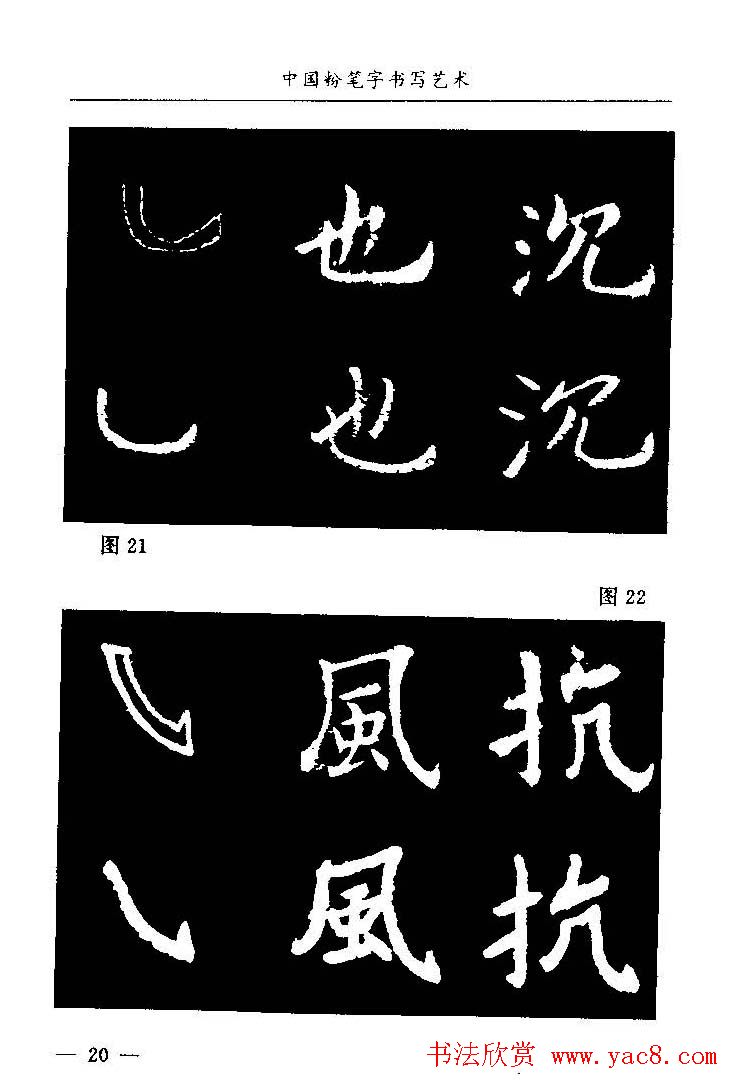 中国粉笔字书写艺术
也 沉
也 沉
图 21
图 22
風 抗
風 抗
— 20 —
书法欣赏 www.yac8.com